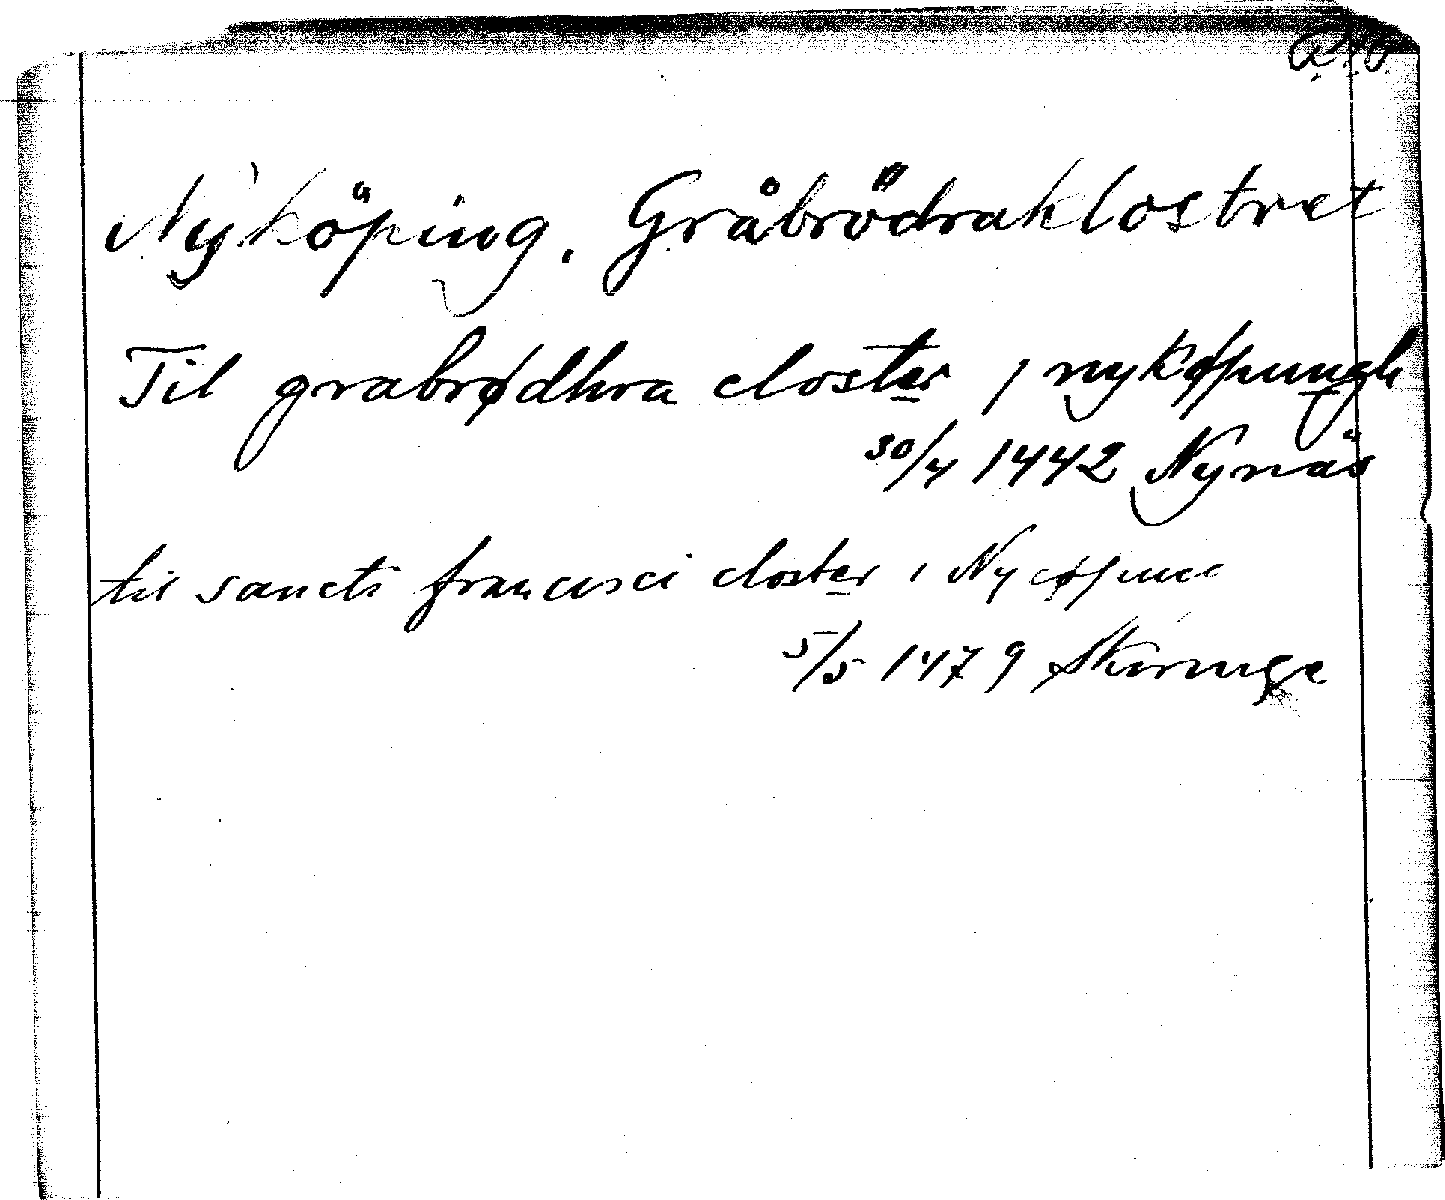 Nyköping. Gråbrödraklostret
Til grabrødhra closter j nykøpungh
30/4 1442 Nynäs
til sancti francisci closter i Nycøpuce
5/5 1479